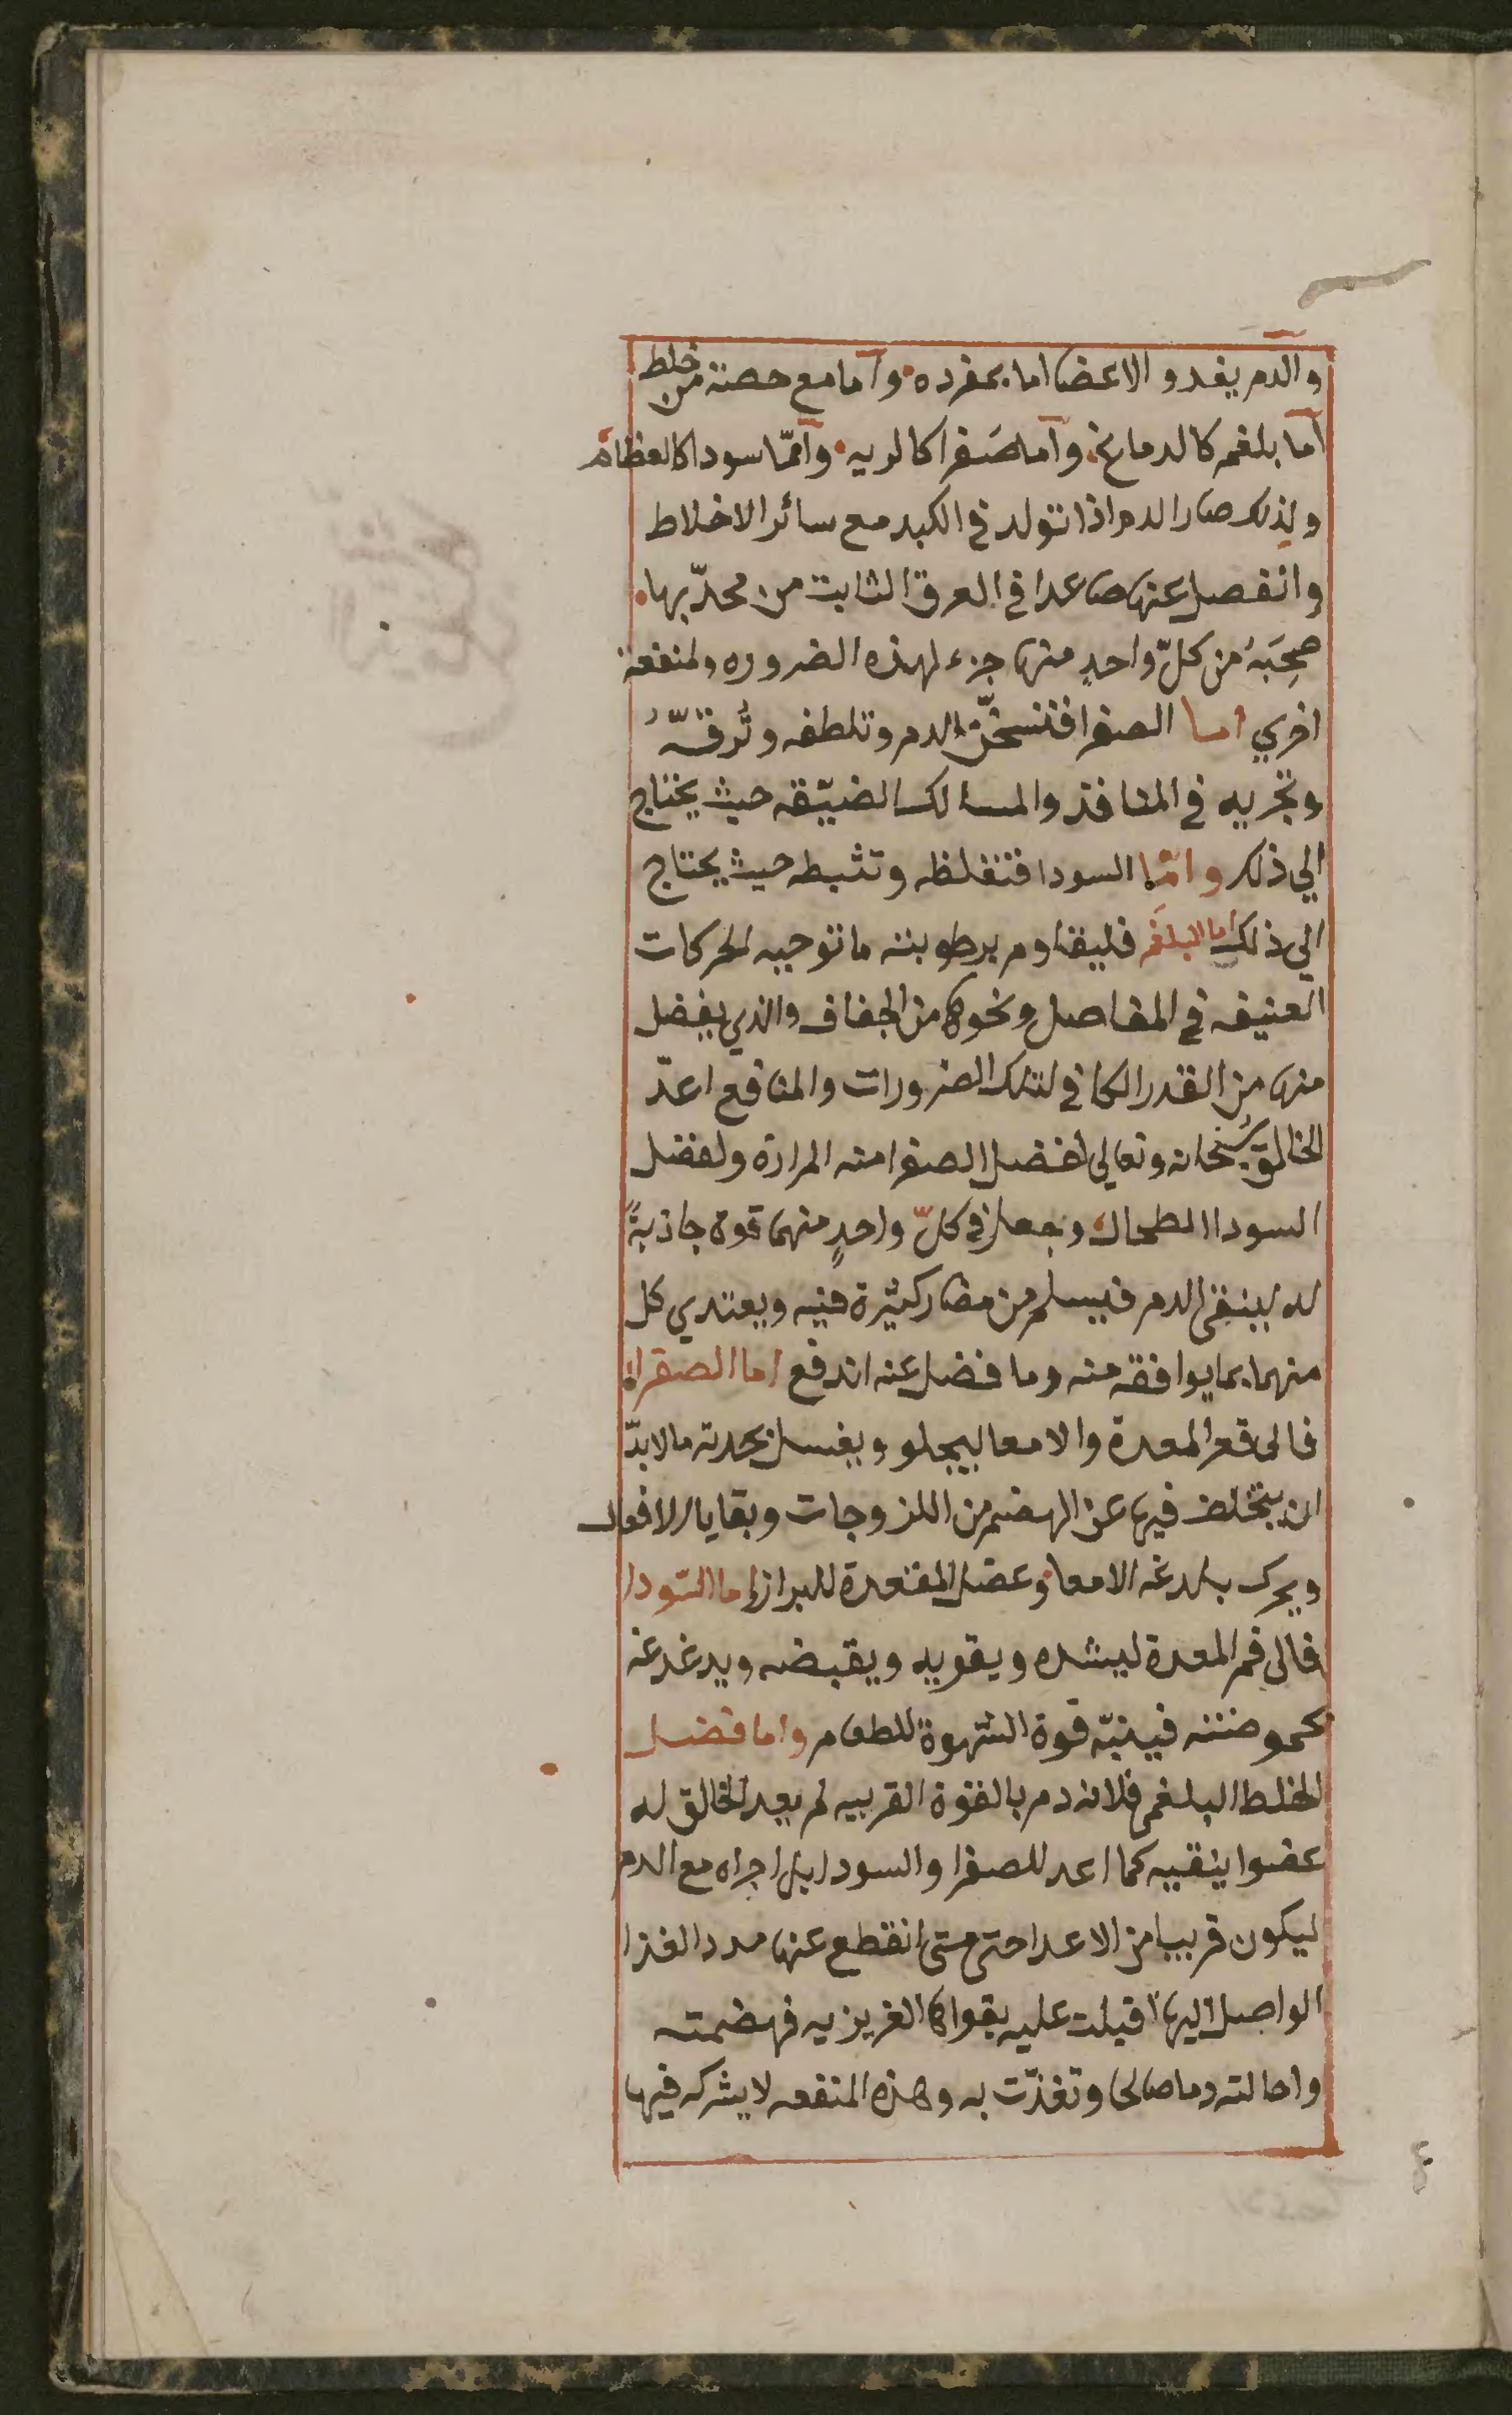 والدم يغدو الاعضا اما بمفرده وآما مع حصة من خلط
آما بلغم كالدماغ وآما صَفرا كالريه وآمّا سودا كالعظام
ولذلك صار الدم اذا تولد في الكبد مع سائر الاخلاط
وانفصل عنها صاعدا في العرق الثابت من محدّبها
صحِبَهُ من كلّ واحدٍ منها جزء لهذه الضروره ولمنفعة
اخري اما الصفرا فتسخّن الدم وتلطفه وتُرقّهُ
وتجريه في المنافذ والمسالك الضيّقه حيث يحتاج
الي ذلك وامّا السودا فتغلظه وتثبطه حيث يحتاج
الي ذلك اما البلغم فليقاوم برطوبته ما توجبه الحركات
العنيفه في المفاصل ونحوها من الجفاف والذي يفضل
منها من القدر الكافي لتلك الضرورات والمنافع اعدّ
الخالق سُبحانه وتعالي لفضل الصفرا منه المرارة ولفضل
السودا الطحال وجعل في كلّ واحدٍ منهما قوة جاذبةً
له لينقي الدم فيسلم من مضار كثيرة فيه ويعتدي كل
منهما بما يوافقه منه وما فضل عنه اندفع اما الصفرا
فالى قعر المعدة والامعا ليجلو ويغسل بحدته ما لا بدّ
ان يتخلف فيها عن الهضم من اللزوجات وبقايا الافعال
ويحرك بلدغه الامعا وعضل المقعدة للبراز اما السّودا
فالى فم المعدة ليشده ويقويه ويقبضه ويدغدغه
بحموضته فينبّه قوة الشهوة للطعام واما فضل
الخلط البلغمى فلانه دم بالقوة القريبه لم يعد الخالق له
عضوا ينقيه كما اعد للصفرا والسودا بل اجراه مع الدم
ليكون قريبا من الاعدا حتى متى انقطع عنها مدد الغذا
الواصل اليها اقبلت عليه بقواها الغريزيه فهضمته
واحالته دما صالحا وتغذّت به وهذه المنفعه لا يشركه فيها